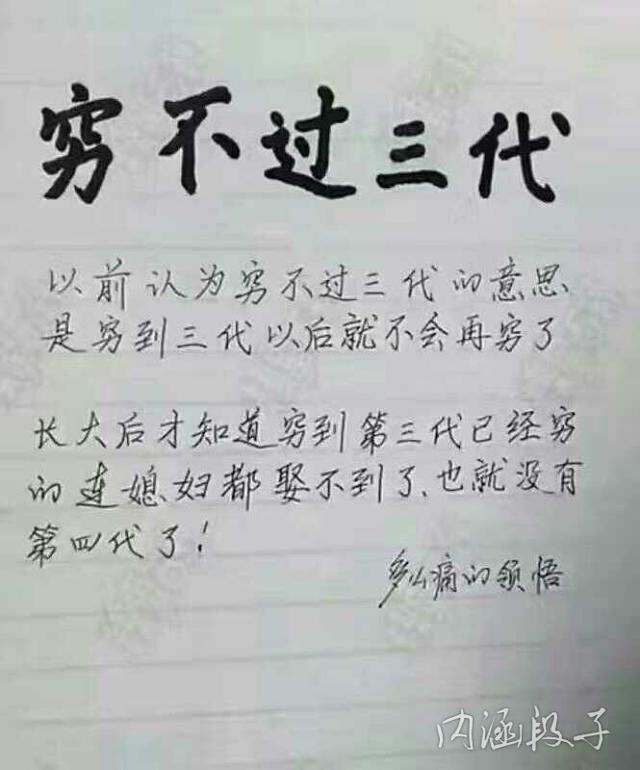 穷不过三代
以前认为穷不过三代的意思
是穷到三代以后就不会再穷了
长大后才知道穷到第三代已经穷
的连媳妇都娶不到了、也就没有
第四代了!
多么痛的领悟
内涵段子